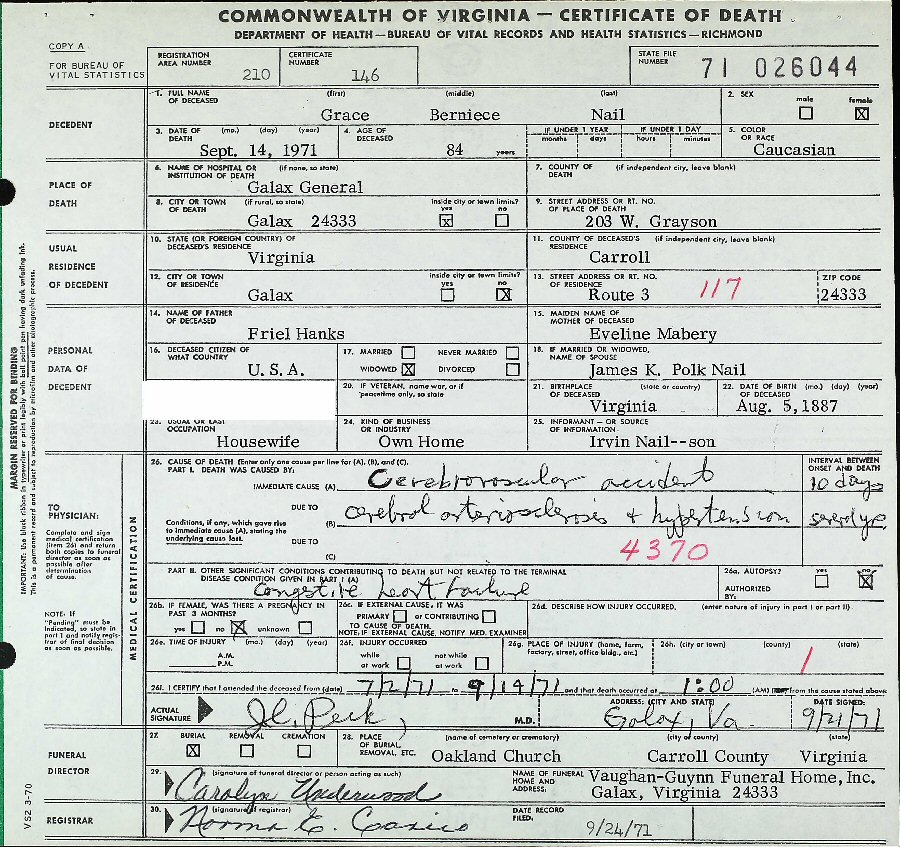 COMMONWEALTH OF VIRGINIA — CERTIFICATE OF DEATH
DEPARTMENT OF HEALTH—BUREAU OF VITAL RECORDS AND HEALTH STATISTICS—RICHMOND
COPY A
FOR BUREAU OF VITAL STATISTICS
REGISTRATION AREA NUMBER 210
CERTIFICATE NUMBER 146
STATE FILE NUMBER 71 026044
DECEDENT
1. FULL NAME OF DECEASED (first) (middle) (last)
Grace Berniece Nail
2. SEX male female X
3. DATE OF DEATH (mo.) (day) (year)
Sept. 14, 1971
4. AGE OF DECEASED 84 years
IF UNDER 1 YEAR months days
IF UNDER 1 DAY hours minutes
5. COLOR OR RACE
Caucasian
PLACE OF DEATH
6. NAME OF HOSPITAL OR INSTITUTION OF DEATH (if none, so state)
Galax General
7. COUNTY OF DEATH (if independent city, leave blank)
8. CITY OR TOWN OF DEATH (if rural, so state) inside city or town limits? yes X no
Galax 24333
9. STREET ADDRESS OR RT. NO. OF PLACE OF DEATH
203 W. Grayson
USUAL RESIDENCE OF DECEDENT
10. STATE (OR FOREIGN COUNTRY) OF DECEASED'S RESIDENCE
Virginia
11. COUNTY OF DECEASED'S RESIDENCE (if independent city, leave blank)
Carroll
12. CITY OR TOWN OF RESIDENCE inside city or town limits? yes no X
Galax
13. STREET ADDRESS OR RT. NO. OF RESIDENCE
Route 3 117
ZIP CODE
24333
PERSONAL DATA OF DECEDENT
14. NAME OF FATHER OF DECEASED
Friel Hanks
15. MAIDEN NAME OF MOTHER OF DECEASED
Eveline Mabery
16. DECEASED CITIZEN OF WHAT COUNTRY
U. S. A.
17. MARRIED NEVER MARRIED
WIDOWED X DIVORCED
18. IF MARRIED OR WIDOWED, NAME OF SPOUSE
James K. Polk Nail
20. IF VETERAN, name war, or if peacetime only, so state
21. BIRTHPLACE OF DECEASED (state or country)
Virginia
22. DATE OF BIRTH OF DECEASED (mo.) (day) (year)
Aug. 5,1887
23. USUAL OR LAST OCCUPATION
Housewife
24. KIND OF BUSINESS OR INDUSTRY
Own Home
25. INFORMANT — OR SOURCE OF INFORMATION
Irvin Nail--son
MARGIN RESERVED FOR BINDING
IMPORTANT: Use black ribbon in typewriter or print legibly with ball point pen having dark unfading ink. This is a permanent record and subject to reproduction by microfilm and other photographic process.
TO PHYSICIAN:
Complete and sign medical certification (item 26) and return both copies to funeral director as soon as possible after determination of cause.
NOTE: If "Pending" must be indicated, so state in part I and notify registrar of final decision as soon as possible.
MEDICAL CERTIFICATION
26. CAUSE OF DEATH (Enter only one cause per line for (A), (B), and (C).
PART I. DEATH WAS CAUSED BY:
INTERVAL BETWEEN ONSET AND DEATH
IMMEDIATE CAUSE (A) Cerebrovascular accident 10 days
Conditions, if any, which gave rise to immediate cause (A), stating the underlying cause last.
DUE TO (B) cerebral arteriosclerosis + hypertension several yrs
DUE TO (C)
4370
PART II. OTHER SIGNIFICANT CONDITIONS CONTRIBUTING TO DEATH BUT NOT RELATED TO THE TERMINAL DISEASE CONDITION GIVEN IN PART I (A)
Congestive heart failure
26a. AUTOPSY? yes no X
AUTHORIZED BY:
26b. IF FEMALE, WAS THERE A PREGNANCY IN PAST 3 MONTHS?
yes no X unknown
26c. IF EXTERNAL CAUSE, IT WAS
PRIMARY or CONTRIBUTING
TO CAUSE OF DEATH.
NOTE: IF EXTERNAL CAUSE, NOTIFY MED. EXAMINER
26d. DESCRIBE HOW INJURY OCCURRED. (enter nature of injury in part I or part II)
26e. TIME OF INJURY (mo.) (day) (year)
A.M.
P.M.
26f. INJURY OCCURRED
while at work not while at work
26g. PLACE OF INJURY (home, farm, factory, street, office bldg., etc.)
26h. (city or town) (county) (state)
26i. I CERTIFY that I attended the deceased from (date) 7/2/71 to 9/14/71 and that death occurred at 1:00 (AM) from the cause stated above
ACTUAL SIGNATURE J.C. Peck M.D.
ADDRESS: (CITY AND STATE)
Galax, Va
DATE SIGNED:
9/21/71
FUNERAL DIRECTOR
27. BURIAL X REMOVAL CREMATION
28. PLACE OF BURIAL, REMOVAL, ETC. (name of cemetery or crematory) (city or county) (state)
Oakland Church Carroll County Virginia
29. (signature of funeral director or person acting as such)
Carolyn Underwood
NAME OF FUNERAL HOME AND ADDRESS:
Vaughan-Guynn Funeral Home, Inc.
Galax, Virginia 24333
REGISTRAR
30. (signature of registrar)
Norma E.
DATE RECORD FILED:
9/24/71
VS2 3-70